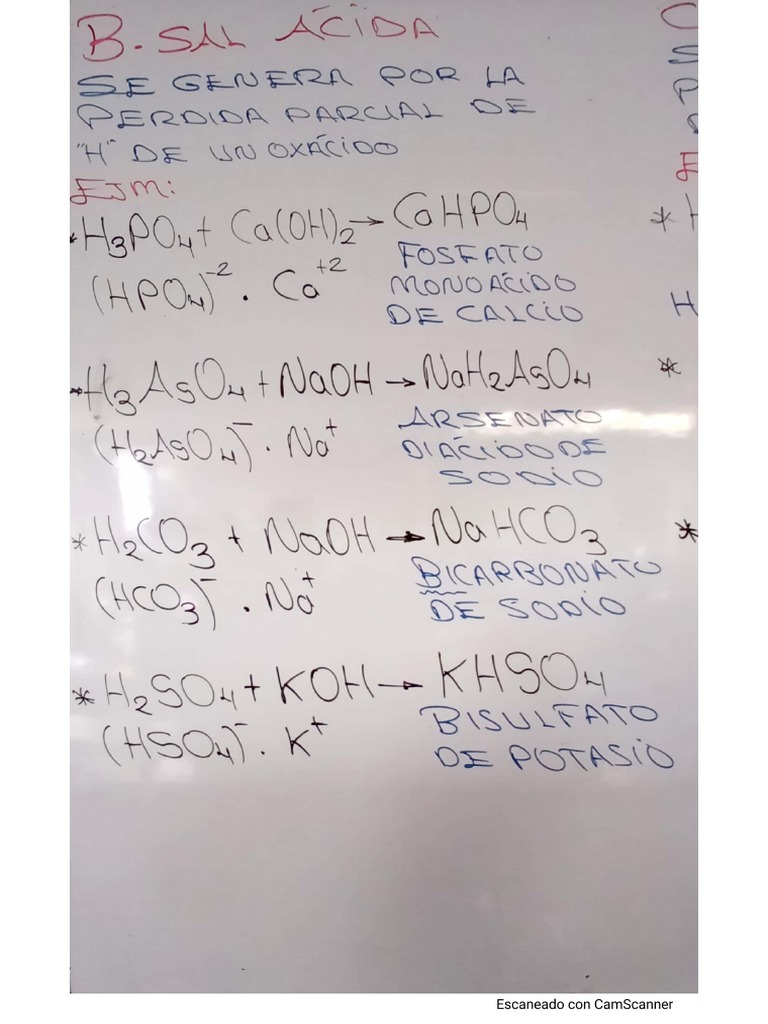 B. SAL ÁCIDA
SE GENERA POR LA
PERDIDA PARCIAL DE
"H" DE UN OXÁCIDO
EJM:
* H₃PO₄ + Ca(OH)₂ → CaHPO₄
(HPO₄)⁻² . Ca⁺²
FOSFATO
MONOÁCIDO
DE CALCIO
* H₃AsO₄ + NaOH → NaH₂AsO₄
(H₂AsO₄)⁻ . Na⁺
ARSENATO
DIÁCIDO DE
SODIO
* H₂CO₃ + NaOH → NaHCO₃
(HCO₃)⁻ . Na⁺
BICARBONATO
DE SODIO
* H₂SO₄ + KOH → KHSO₄
(HSO₄)⁻ . K⁺
BISULFATO
DE POTASIO
Escaneado con CamScanner